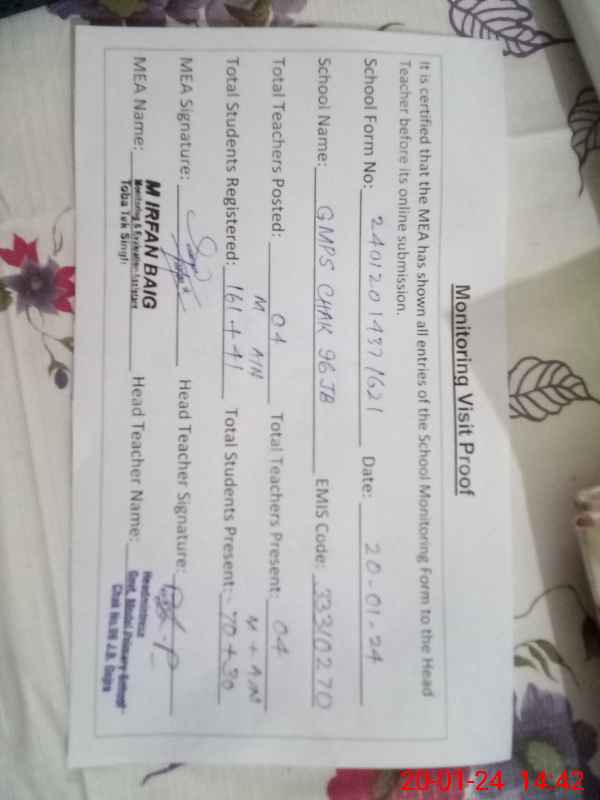 Monitoring Visit Proof
It is certified that the MEA has shown all entries of the School Monitoring Form to the Head
Teacher before its online submission.
School Form No: 24012014371621 Date: 20-01-24
School Name: GMPS CHAK 96JB EMIS Code: 33310270
Total Teachers Posted: 04 Total Teachers Present: 04
M A/N M + A/N
Total Students Registered: 161 + 41 Total Students Present: 70 + 30
MEA Signature: Head Teacher Signature:
MEA Name: M IRFAN BAIG Head Teacher Name: Headmistress
Monitoring & Evaluation Assistant Govt. Model Primary School
Toba Tek Singh Chak No.96 J.B. Gojra
20-01-24 14:42